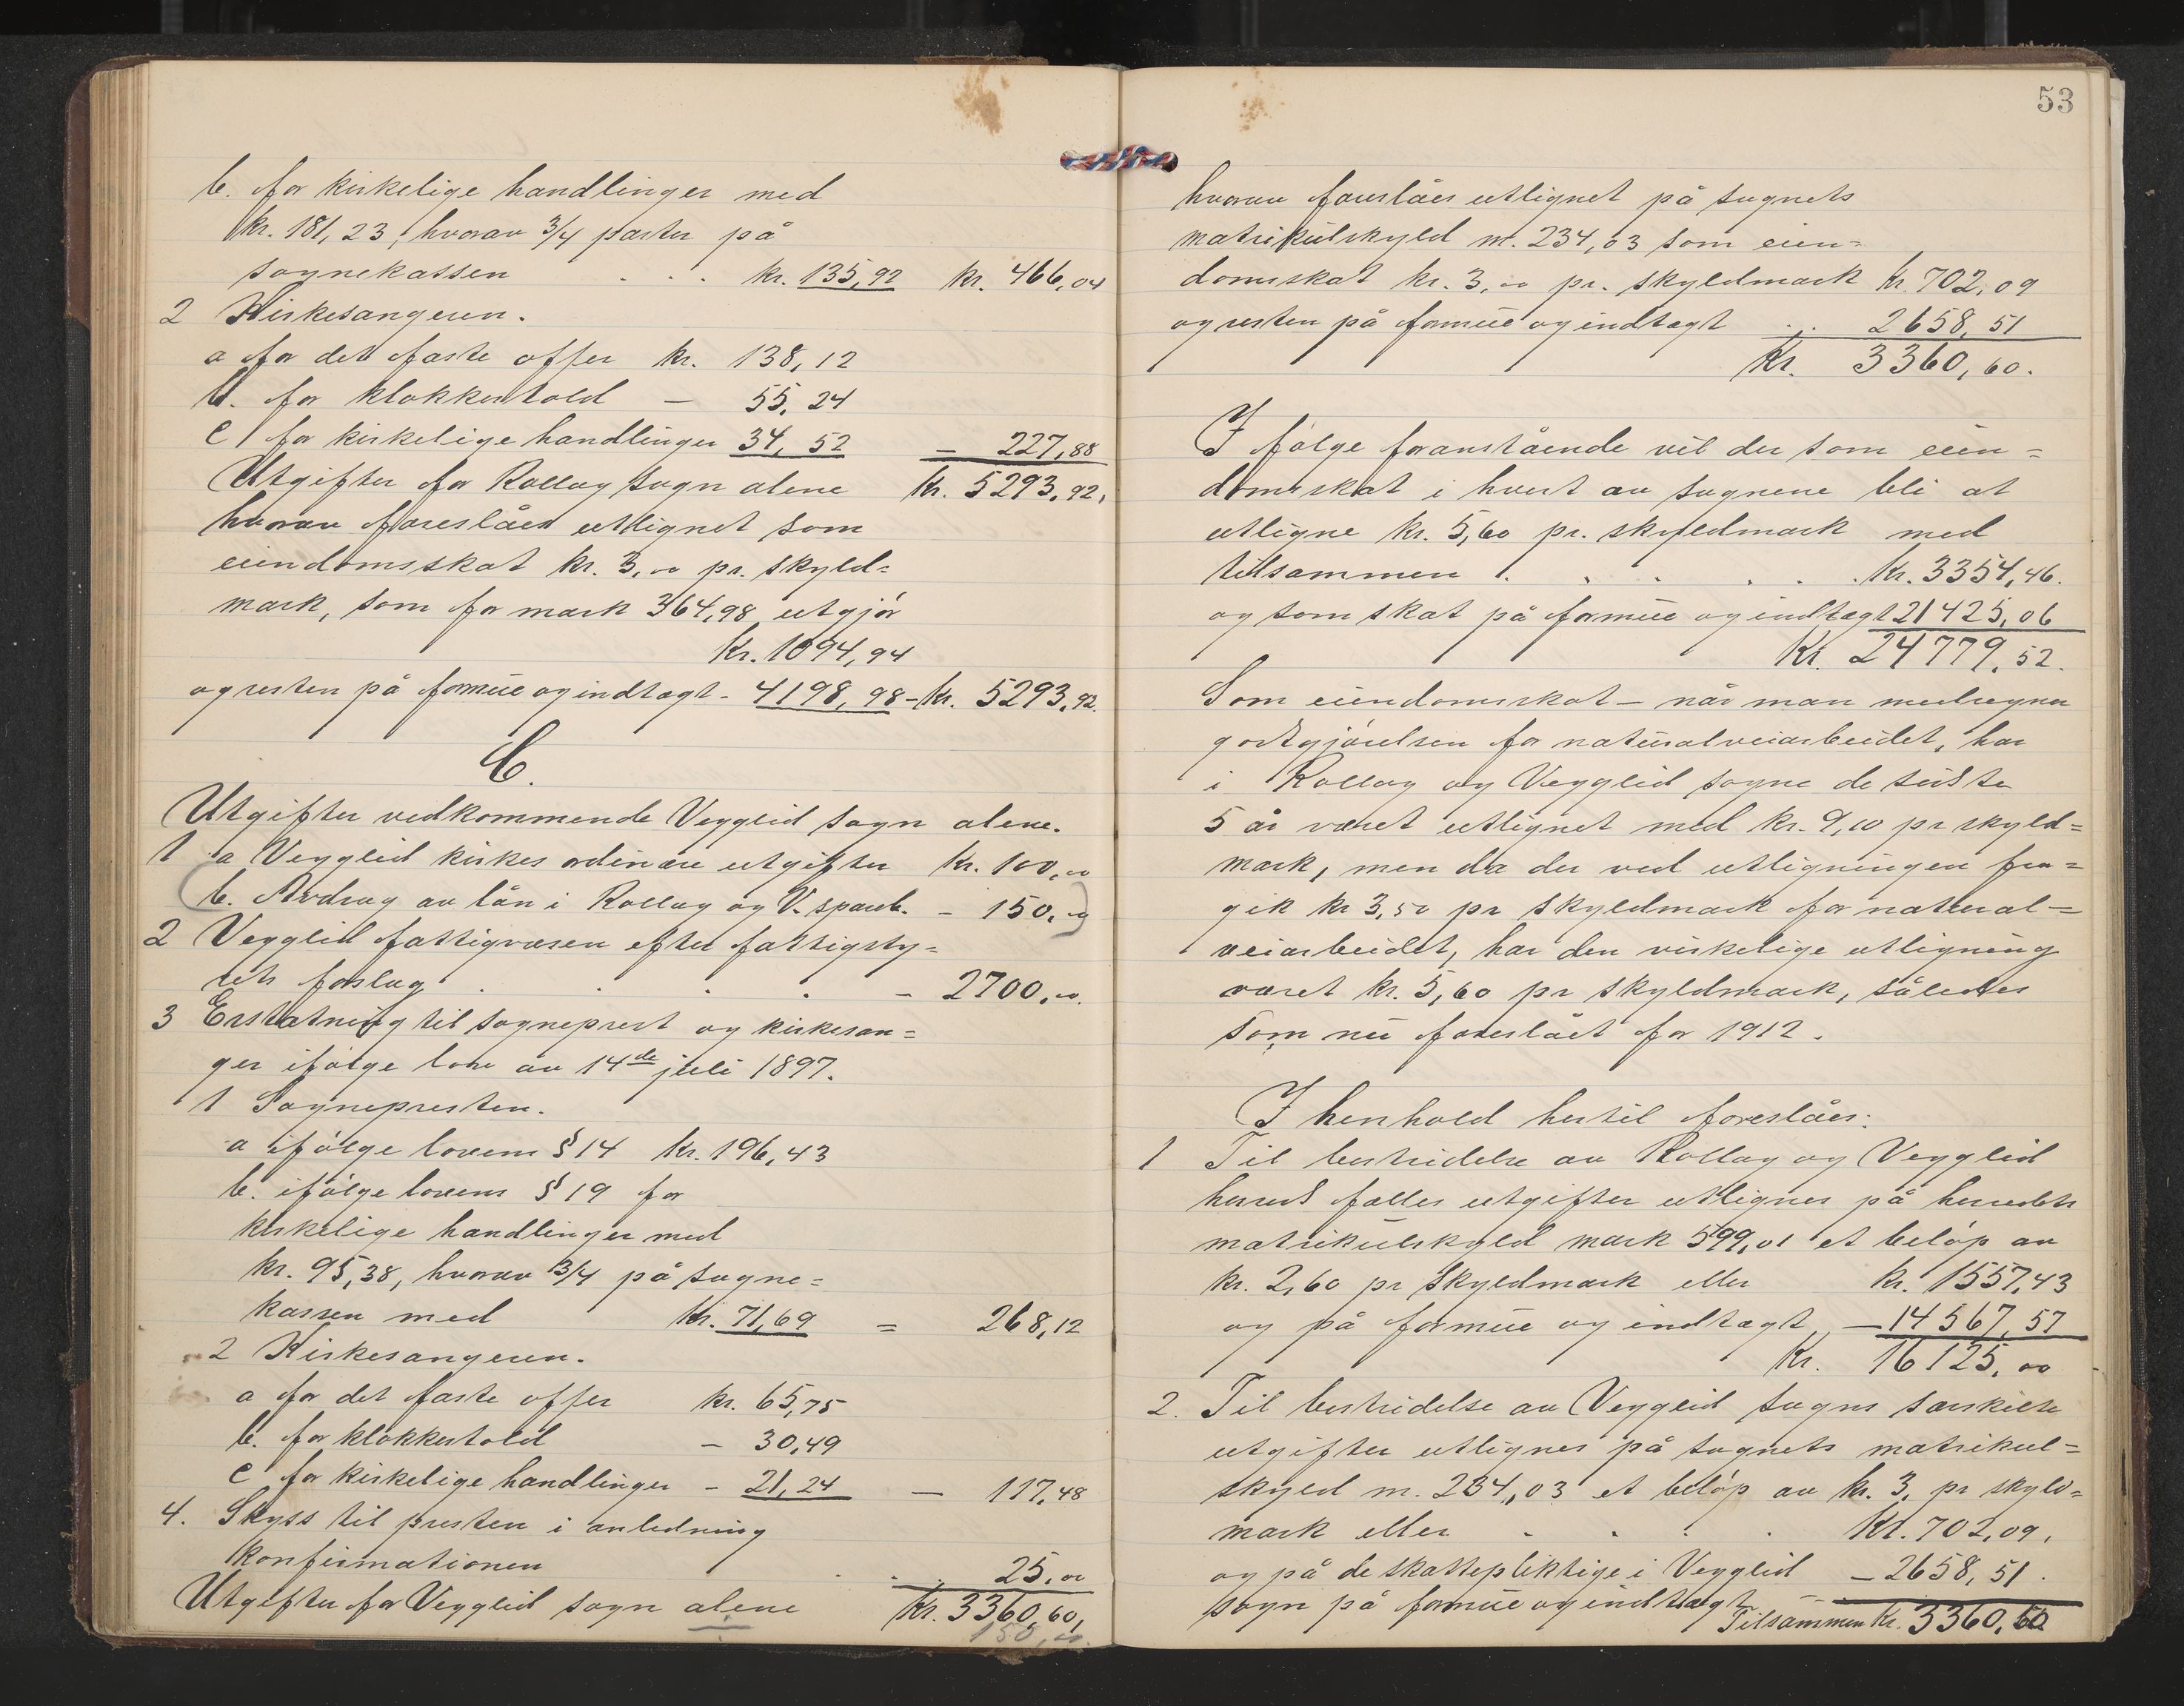 b. for kirkelige handlinger med
kr. 181,23, hvorav 3/4 parter på
sognekassen . . . kr. 135,92 kr. 466,04
2 Kirkesangeren.
a for det faste offer kr. 138,12
b. for klokkertold — 55,24
c for kirkelige handlinger 34,52 — 227,88
Utgifter for Rollag sogn alene kr. 5293,92,
hvorav foreslåes utlignet som
eiendomsskat kr. 3,00 pr. skyld=
mark, som for mark 364,98 utgjør
kr. 1094,94
og resten på formue og indtægt - 4198,98 - kr. 5293,92.
C.
Utgifter vedkommende Vegglid sogn alene.
1 a Vegglid kirkes ordinære utgifter kr. 100,00
(b. Avdrag av lån i Rollag og V. spareb. - 150,00)
2 Vegglid fattigvæsen efter fattigsty=
rets forslag . . . - 2700,00.
3 Erstatning til sogneprest og kirkesan=
ger ifølge lov av 14de juli 1897.
1 Sognepresten.
a ifølge lovens § 14 kr. 196,43
b. ifølge lovens § 19 for
kirkelige handlinger med
kr. 95,38, hvorav 3/4 på sogne=
kassen med kr. 71,69 = 268,12
2 Kirkesangeren.
a for det faste offer kr. 65,75
b. for klokkertold — 30,49
c for kirkelige handlinger - 21,24 — 117,48
4. Skyss til presten i anledning
konfirmationen . . . 25,00
Utgifter for Vegglid sogn alene kr. 3360,60,
150,00.
53
hvorav foreslåes utlignet på sognets
matrikulskyld m. 234,03 som eien=
domsskat kr. 3,00 pr. skyldmark kr. 702,09
og resten på formue og indtægt . . . 2658,51
Kr. 3360,60.
I følge foranstående vil der som eien=
domsskat i hvert av sognene bli at
utligne kr. 5,60 pr. skyldmark med
tilsammen . . . . . . kr. 3354,46.
og som skat på formue og indtægt 21425,06
Kr. 24779,52.
Som eiendomsskat — når man medregner
godtgjørelsen for naturalveiarbeidet, har
i Rollag og Vegglid sogne de siste
5 år været utlignet med kr. 9,10 pr skyld=
mark, men da der ved utligningen fra=
gik kr 3,50 pr skyldmark for natural=
veiarbeidet, har den virkelige utligning
været kr. 5,60 pr skyldmark, således
som nu foreslået for 1912.
I henhold hertil foreslåes:
1 Til bestridelse av Rollag og Vegglid
herreds fælles utgifter utlignes på herredets
matrikulskyld mark 599,01 et beløp av
kr. 2,60 pr skyldmark eller kr. 1557,43
og på formue og indtægt — 14567,57
Kr. 16125,00
2. Til bestridelse av Vegglid sogns særskilte
utgifter utlignes på sognets matrikul=
skyld m. 234,03 et beløp av kr. 3, pr skyld=
mark eller . . . . Kr. 702,09,
og på de skattepliktige i Vegglid — 2658,51.
sogn på formue og indtægt
Tilsammen kr. 3360,60